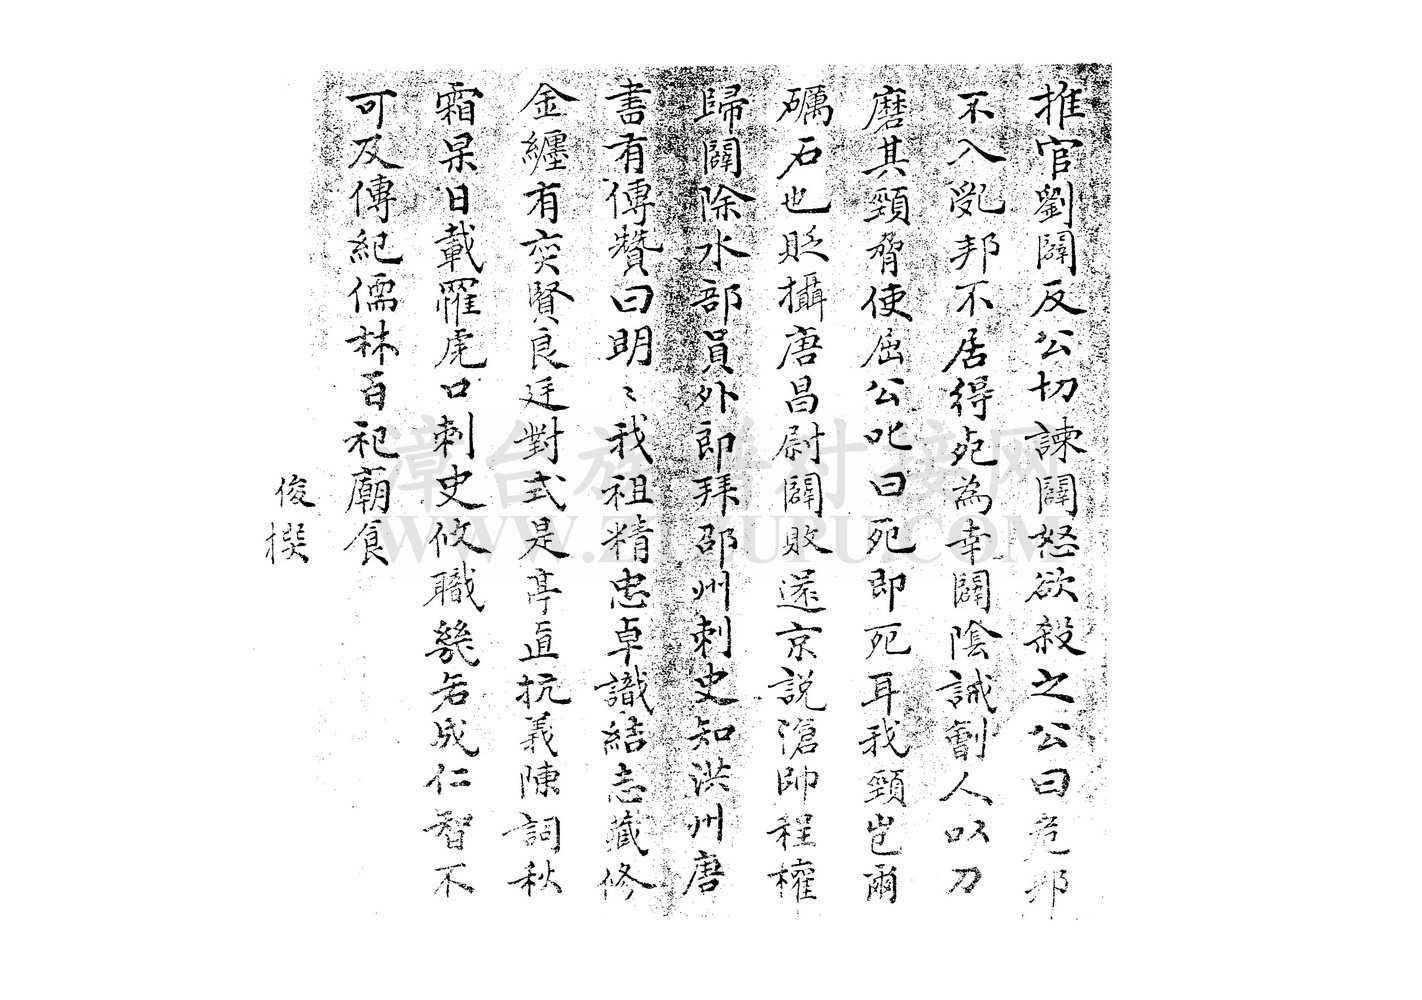 推官劉闢反公切諫闢怒欲殺之公曰危邦
不入亂邦不居得死為幸闢陰誡劊人以刀
磨其頸脅使屈公叱曰死即死耳我頸豈爾
礪石也貶攝唐昌尉闢敗還京說滄帥程權
歸闕除水部員外郎拜邵州刺史知洪州唐
書有傳贊曰明〻我祖精忠卓識結志藏修
金纏有奕賢良廷對式是亭直抗義陳詞秋
霜杲日載罹虎口刺史攸職幾若成仁智不
可及傳紀儒林百祀廟食
俊撰
漳台族譜对接网
WWW.ZTZUPU.COM